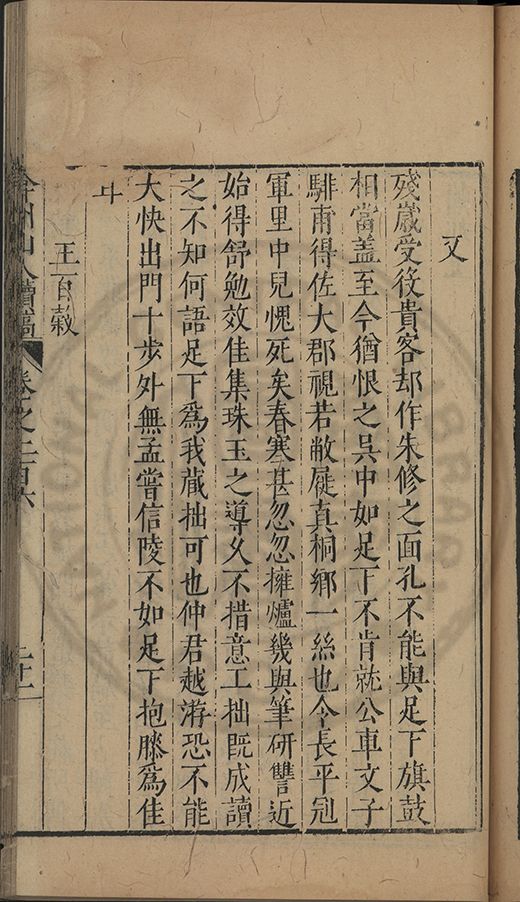 又
殘歲受役貴客却作朱修之面孔不能與足下旗鼓
相當盖至今猶恨之吳中如足下不肯就公車文子
騑甭得佐大郡視若敝屣真桐鄉一絲也令長平冠
軍里中兒愧死矣春寒甚忽忽擁爐幾與筆研讐近
始得舒勉效佳集珠玉之導义不措意工拙既成讀
之不知何語足下爲我藏拙可也仲君越游恐不能
大快出門十步外無孟嘗信陵不如足下抱膝爲佳
王百穀
弇州山人續稿
卷之二百六
二十二